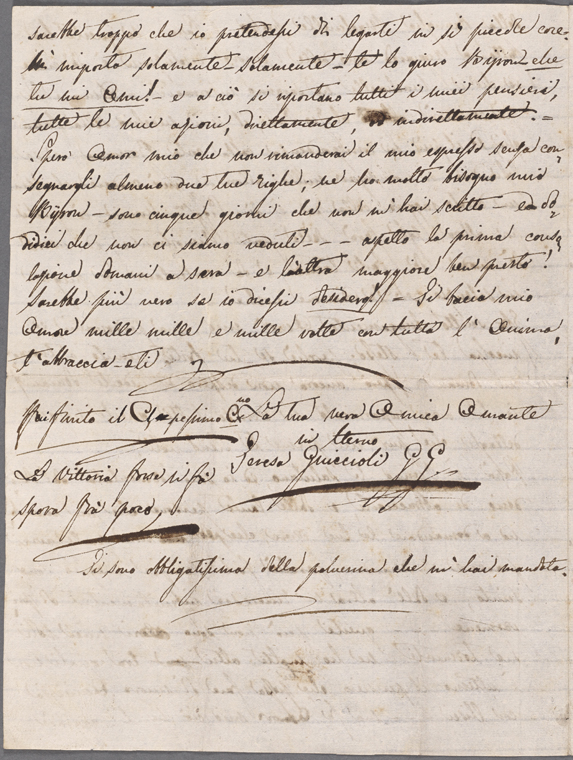 sarebbe troppo che io pretendessi di legarti in sì piccole cose -
m' importa solamente - solamente - te lo giuro Byron che
tu mi Ami! - e a ciò si riportano tutti i miei pensieri,
tutte le mie azioni, direttamente, indirettamente. -
Però Amor mio che non rimanderai il mio espresso senza con-
segnargli almeno due tue righe; ne ho molto bisogno mio
Byron - sono cinque giorni che non m'hai scritto - e do-
didici che non ci siamo veduti - - - aspetto la prima conso-
lazione domani a sera - e l'altra maggiore ben presto!
Sarebbe più vero se io dicessi desidero! - Ti bacia mio
Amore mille mille e mille volte con tutta l'Anima,
T'abbraccia - e ti
La tua vera Amica Amante
in Eterno
Teresa Guiccioli G G.
Hai finito il
La Vittoria forse si fa
sposa frà poco,
Ti sono obbligatissima della polverina che m'hai mandata.